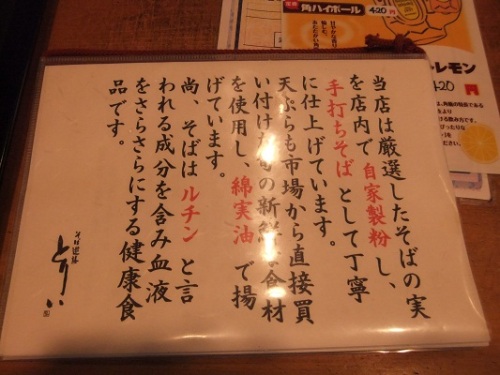 当店は厳選したそばの実
を店内で自家製粉し、
手打ちそばとして丁寧
に仕上げています。
天ぷらも市場から直接買
い付けた旬の新鮮な食材
を使用し、綿実油で揚
げています。
尚、そばは ルチン と言
われる成分を含み血液
をさらさらにする健康食
品です。
とりい
角ハイボール 420
レモン
420